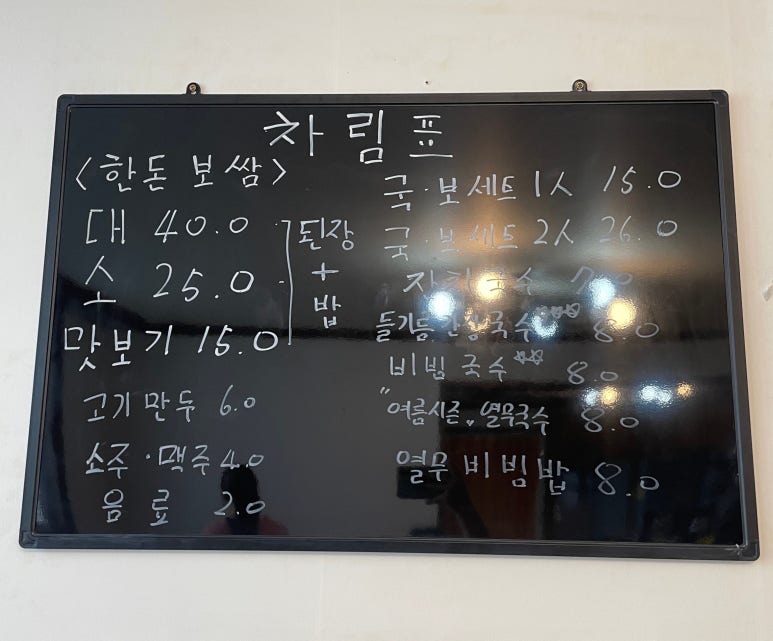 차림표
<한돈 보쌈>
대 40.0
소 25.0
맛보기 15.0
된장
+
밥
고기만두 6.0
소주·맥주 4.0
음료 2.0
국·보세트 1人 15.0
국·보세트 2人 26.0
국수
들기름간장국수 ☆☆☆ 8.0
비빔국수 ☆☆ 8.0
"여름시즌" 열무국수 8.0
열무비빔밥 8.0